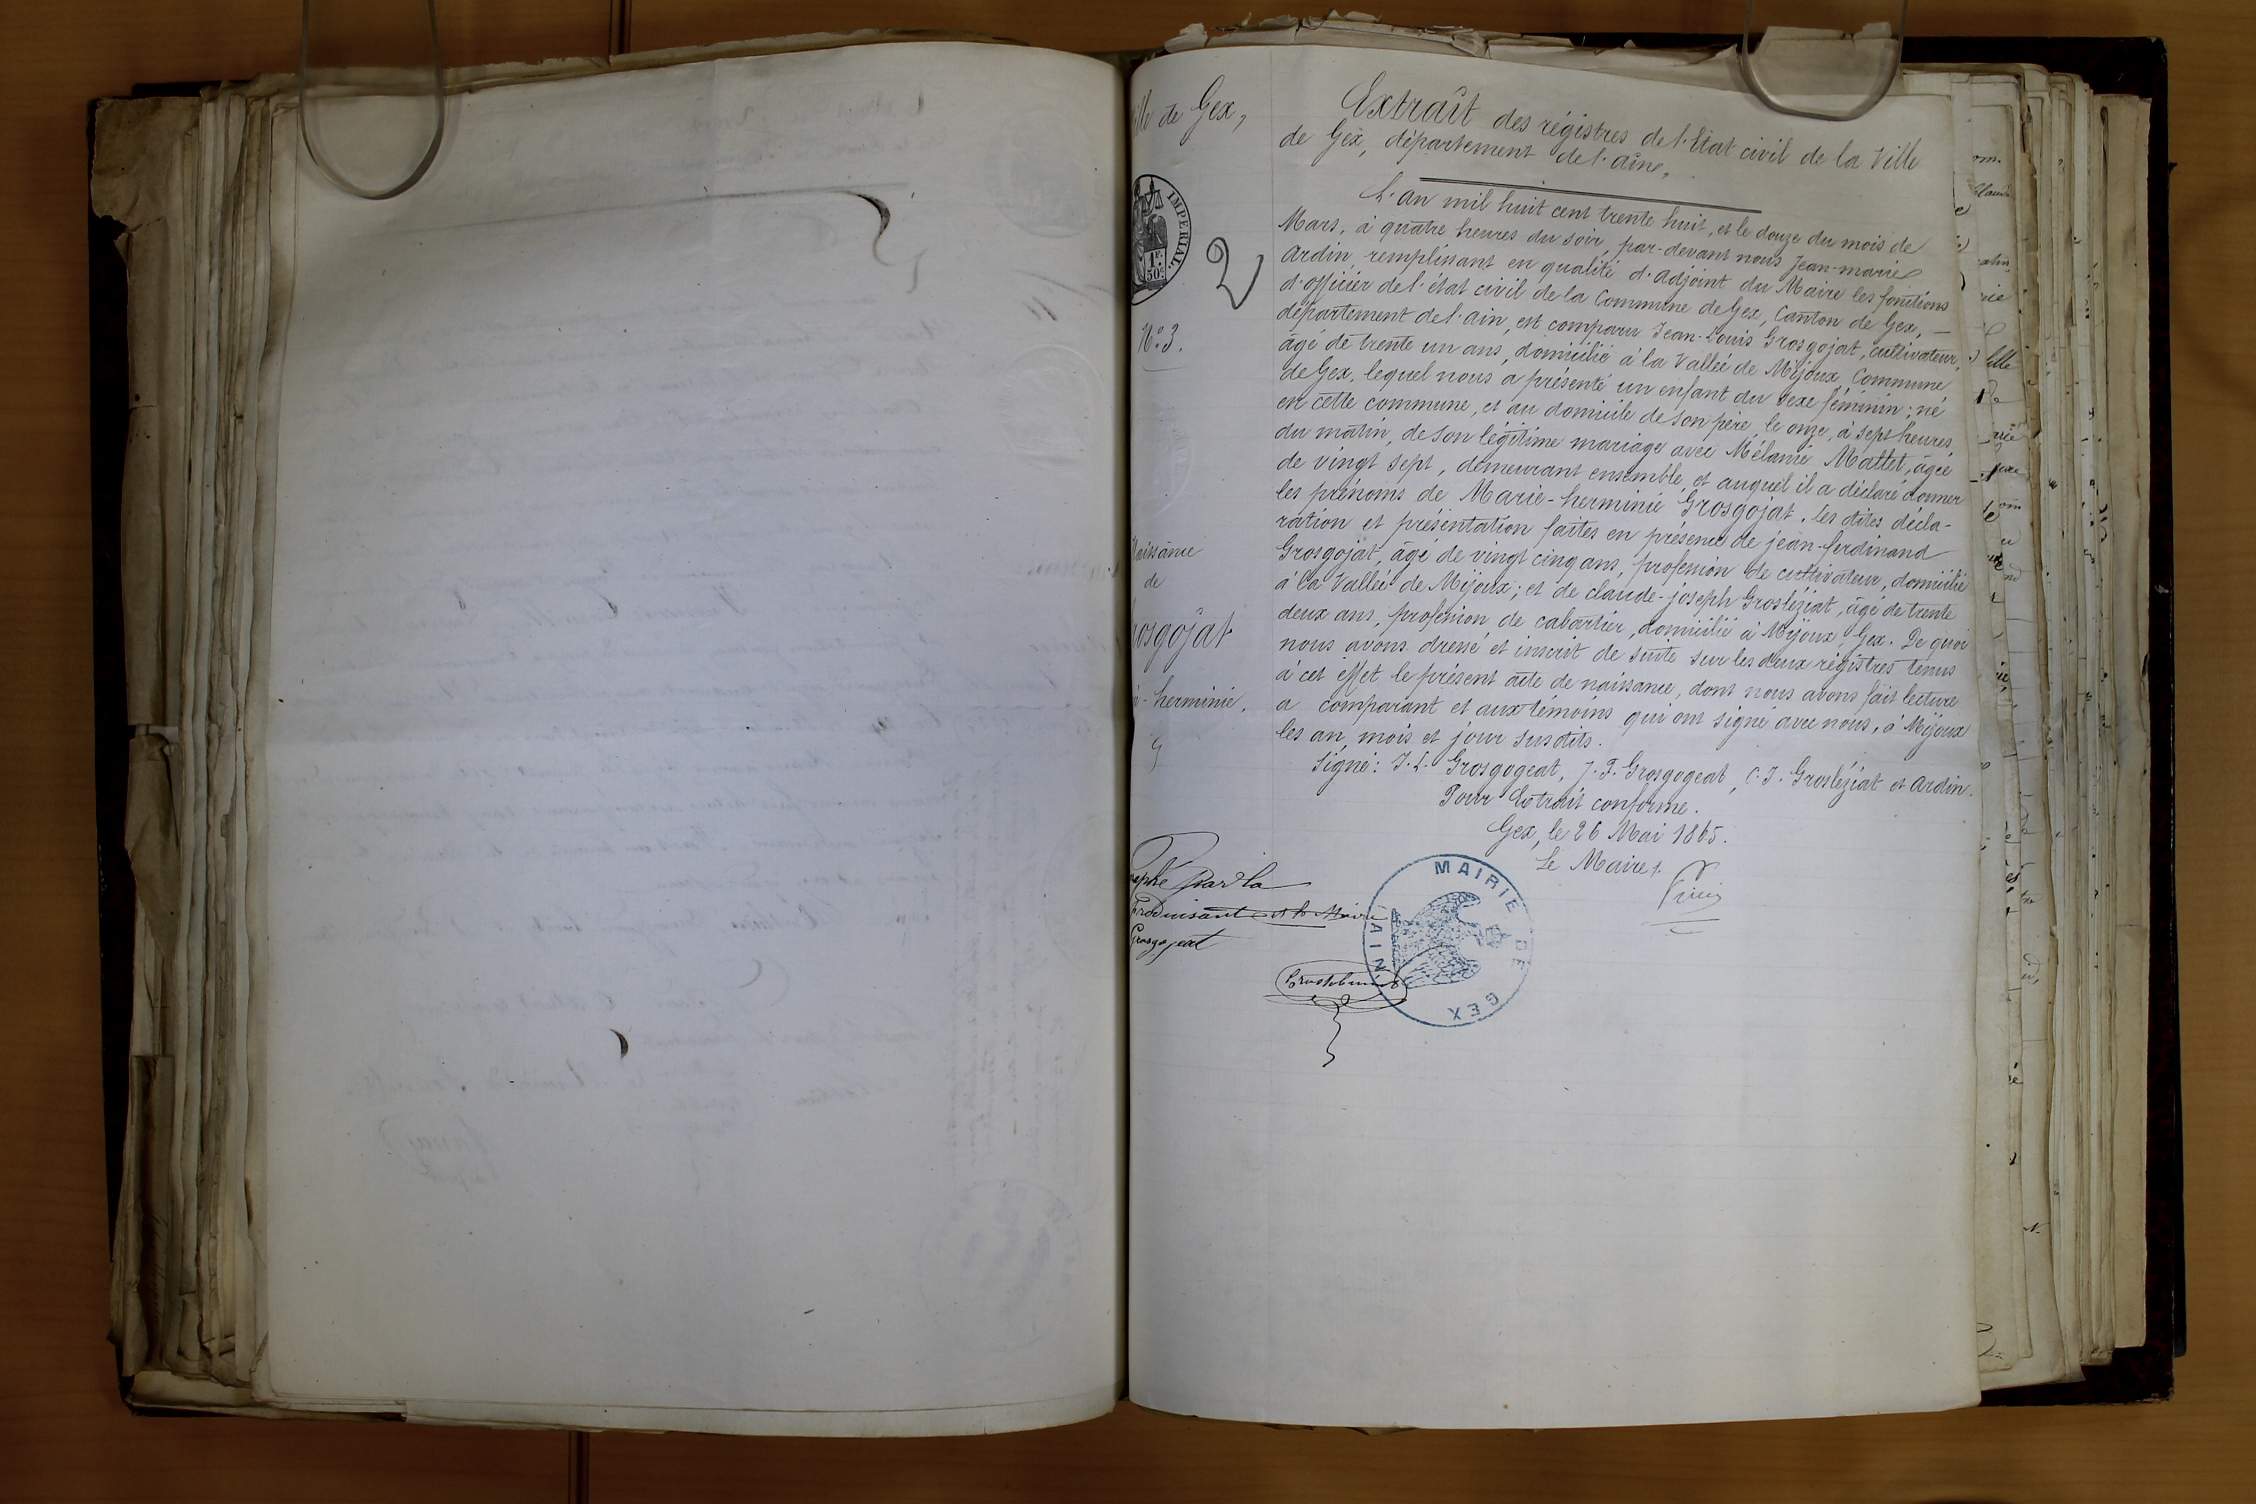 Ville de Gex,
IMPERIAL.
1F.
50C.
2
N.o 3.
Naissance
de
Grosgojat
- herminie.
Extrait des régistres de l'Etat civil de la Ville
de Gex, département de l'ain.
L'an mil huit cent trente huit, et le douze du mois de
Mars, à quatre heures du soir, par-devant nous Jean-marie
Ardin, remplissant en qualité d'adjoint du Maire les fonctions
d'officier de l'état civil de la Commune de Gex, Canton de Gex, —
département de l'ain, est comparu Jean-Louis Grosgojat, cultivateur,
âgé de trente un ans, domicilié à la Vallée de Mijoux, Commune
de Gex, lequel nous a présenté un enfant du sexe féminin; né
en cette commune, et au domicile de son père, le onze, à sept heures
du matin, de son légitime mariage avec Mélanie Mattet, âgée
de vingt sept, demeurant ensemble, et auquel il a déclaré donner
les prénoms de Marie-herminie Grosgojat. les dites décla-
ration et présentation faites en présence de jean-ferdinand
Grosgojat, âgé de vingt cinq ans, profession de cultivateur, domicilié
à la Vallée de Mijoux; et de claude-joseph Grosléziat, âgé de trente
deux ans, profession de cabartier, domicilié à Mijoux, Gex. De quoi
nous avons dressé et inscrit de suite sur les deux régistres tenus
à cet effet le présent acte de naissance, dont nous avons fait lecture
a comparant et aux témoins qui ont signé avec nous, à Mijoux
les an, mois et jour susdits.
Signé: J.L. Grosgogeat, J.F. Grosgogeat, C.J. Grosléziat et Ardin.
Pour Extrait conforme.
Gex, le 26 Mai 1865.
Le Maire,
MAIRIE DE GEX
(AIN)
par la
Produisant et la Mère
Grosgojeat